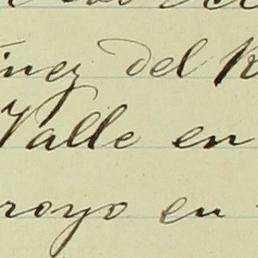 inez del R
Valle en
royo en